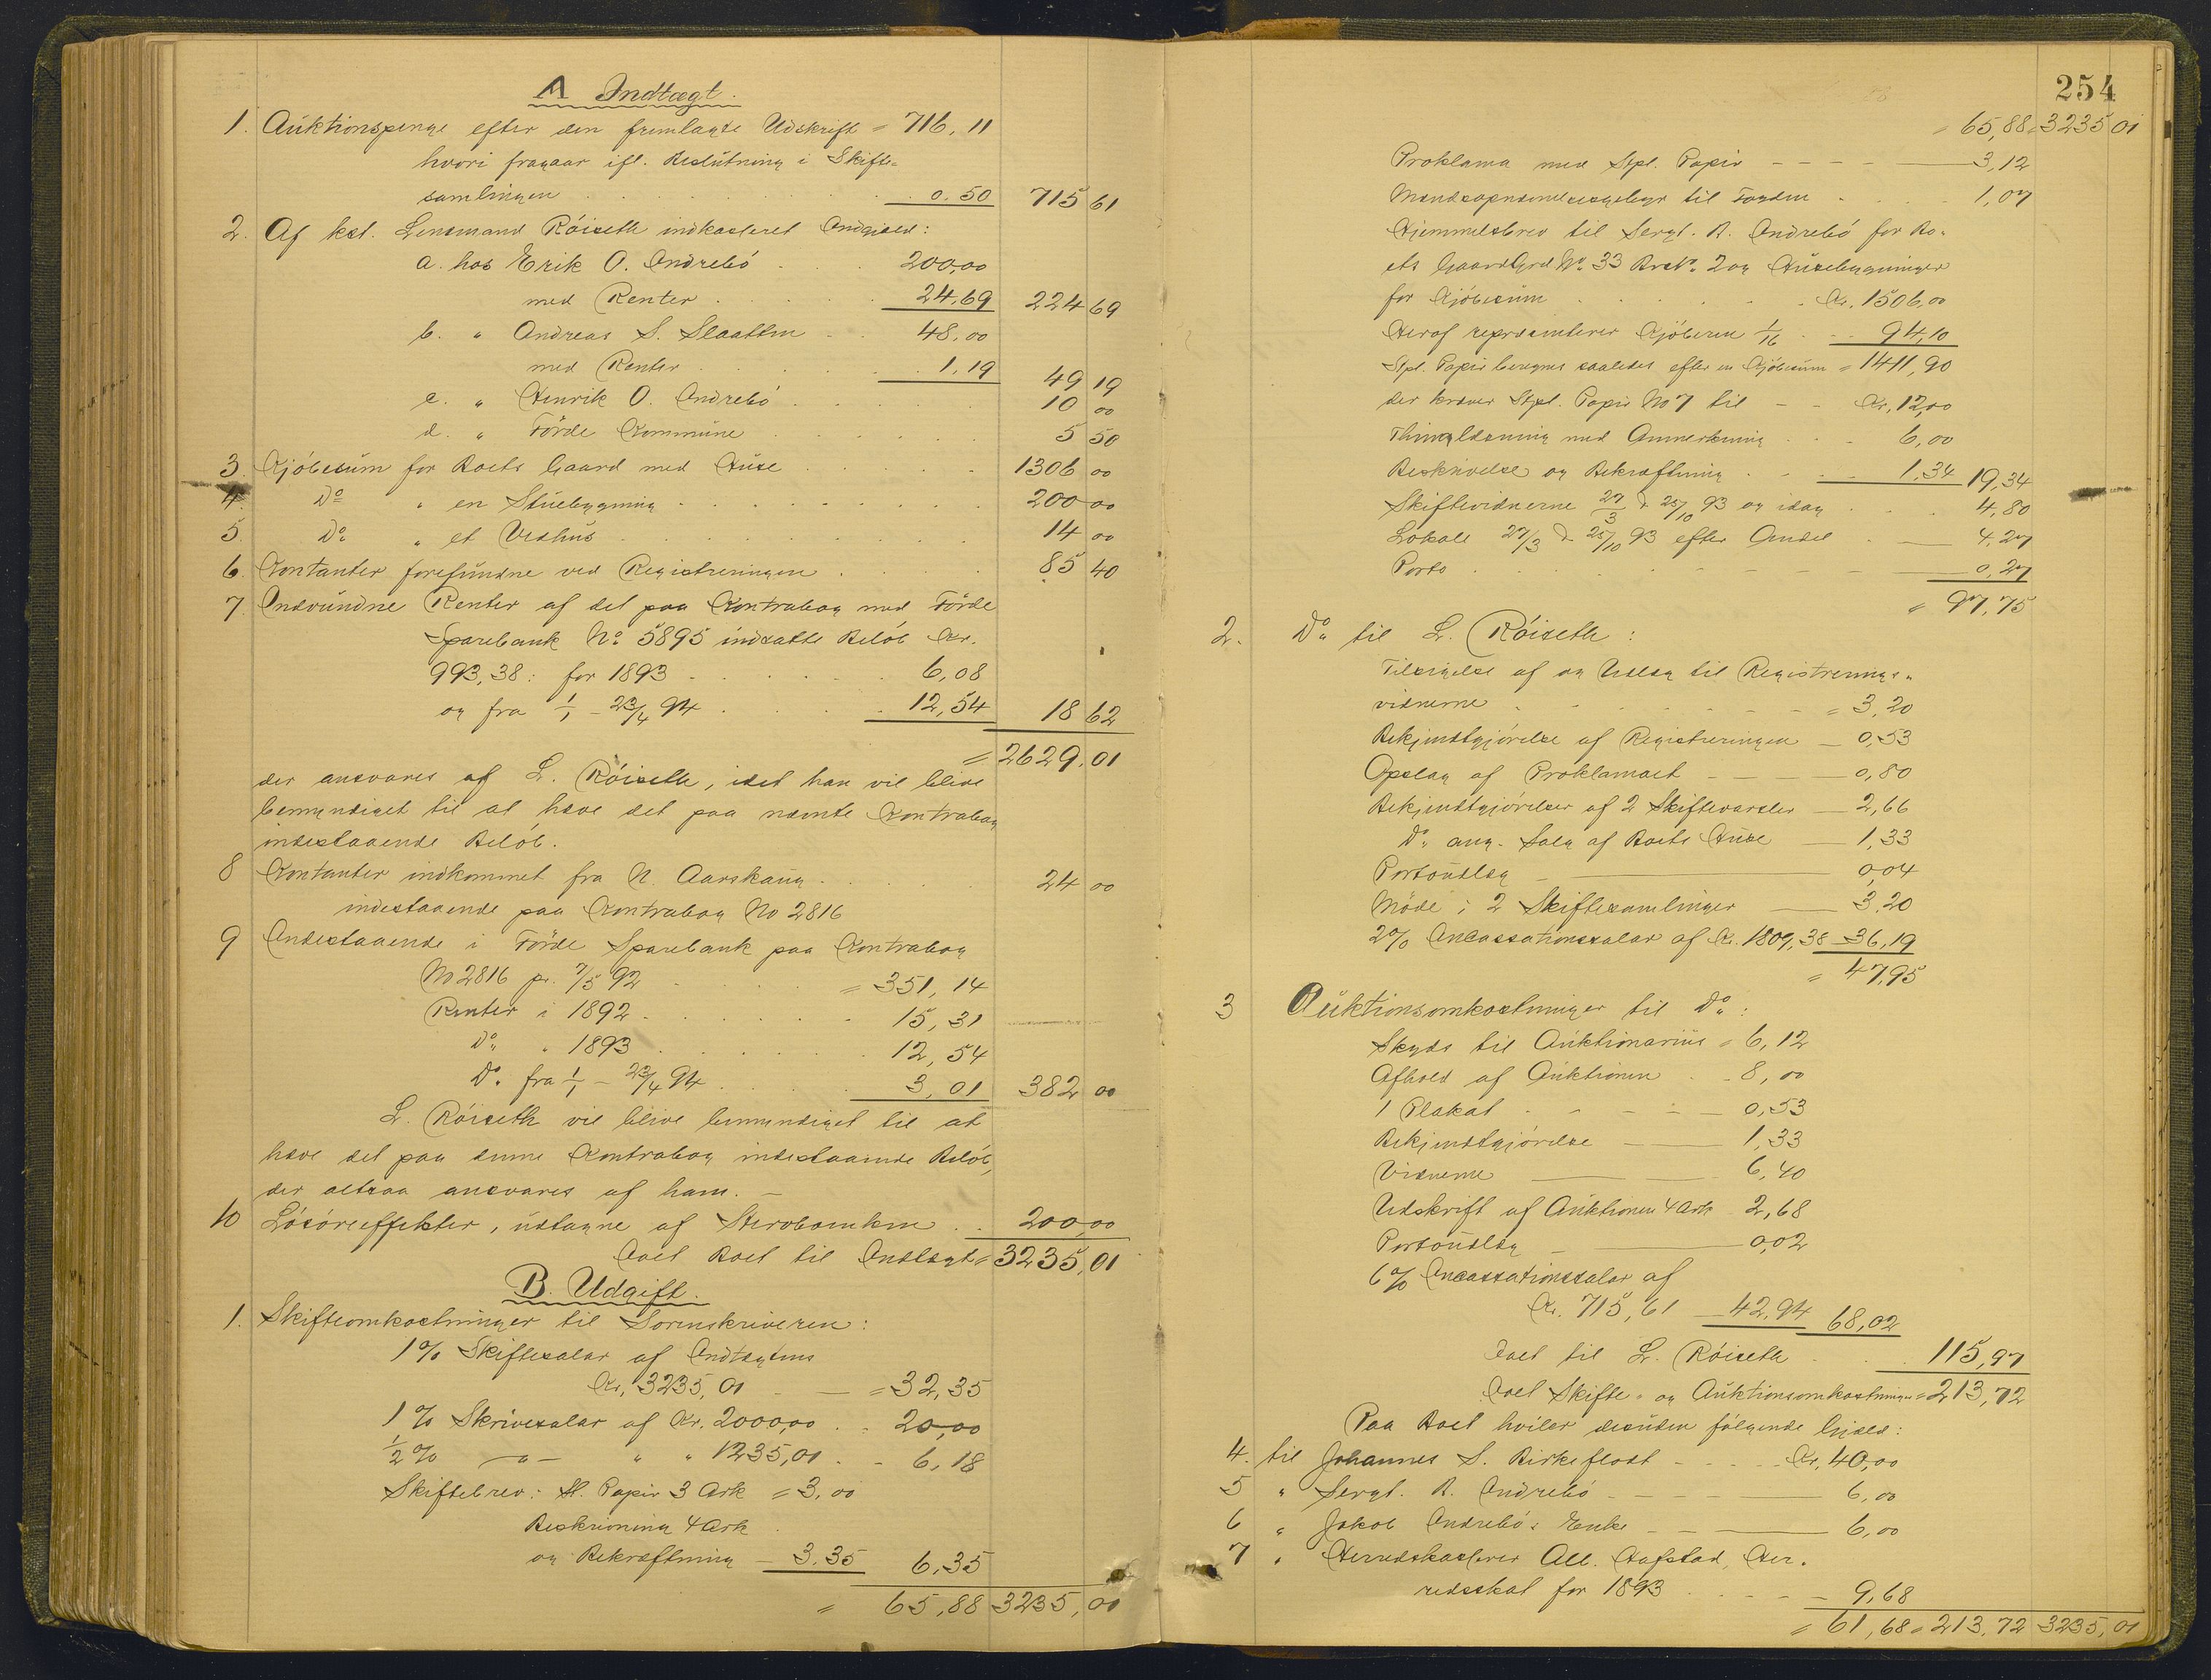 A Indtægt.
1. Auktionspenge efter den fremlagte Udskrift = 716,11
hvori fragaar ifl. Beslutning i Skifte-
samlingen . . . 0.50 715 61
2. Af kst. Lensmand Röiseth indkasseret Indgjæld:
a. hos Erik O. Indrebö . . . 200,00
med Renter . . . 24,69 224 69
b. " Andreas S. Slaatten . . 48,00
med Renter . . . 1,19 49 19
c. " Henrik O. Indrebö . . . 10 00
d. " Förde Kommune . . . 5 50
3. Kjöbesum for Boets Gaard med Huse . . . 1306 00
4. Do " en Stuebygning . . . 200 00
5. Do " et Vedhus . . . 14 00
6. Kontanter forefundne ved Registreringen . . . 85 40
7. Indvundne Renter af det paa Kontrabog med Förde
Sparebank No 5895 indsatte Belöb Kr.
993,38: for 1893 . . . 6,08
og fra 1/1 - 23/4 94 . . . 12,54 18 62
= 2629,01
der ansvares af L. Röiseth, idet han vil blive
bemyndiget til at hæve det paa nævnte Kontrabog
indestaaende Belöb.
8 Kontanter indkommet fra N. Aarskaug . . . 24 00
indestaaende paa Kontrabog No 2816
9 Indestaaende i Förde Sparebank paa Kontrabog
No 2816 pr. 7/5 92 . . . = 351,14
Renter i 1892 . . . 15,31
Do " 1893 . . . 12,54
Do fra 1/1 - 23/4 94 . . . 3,01 382 00
L. Röiseth vil blive bemyndiget til at
hæve det paa denne Kontrabog indestaaende Belöb,
der altsaa ansvares af ham. –
10 Lösöreeffekter, udtagne af Stervboenken . . 200,00
Ialt Boet til Indtægt = 3235,01
B. Udgift.
1. Skifteomkostninger til Sorenskriveren:
1% Skiftesalar af Indtægtens
Kr. 3235,01 - — = 32,35
1% Skrivesalar af Kr. 2000,00 . . 20,00
1/2% — " — " " 1235,01 . - 6,18
Skiftebrev: St. Papir 3 Ark = 3,00
Beskrivning 4 Ark .
og Bekræftning — 3.35 6,35
= 65,88 3235,01
254
= 65,88 = 3235 01
Proklama med Stpl. Papir - - - - — 3,12
Mandsopnævnelsesgebyr til Fogden . . . 1,07
Hjemmelsbrev til Sergt. R. Indrebö for Bo-
ets Gaard Grd No. 33 Brsk. 2 og Husebygninger
for Kjöbesum . . . Kr. 1506,00
Heraf repræsenterer Kjöberen 1/16 . . . 94,10
Stpl. Papir beregnes saaledes efter en Kjöbesum = 1411,90
der kræver Stpl. Papir No 7 til - - Kr. 12,00
Thinglæsning med Anmerkning . . . 6,00
Beskrivelse og Bekræftning . . . 1,34 19,34
Skiftevidnerne 27/3 & 25/10 93 og idag . . . 4,80
Lokale 27/3 & 25/10 93 efter Andel . — 4,27
Porto . . . 0,27
= 97,75
2. Do til L. Röiseth:
Tilsigelse af og Udlæg til Registrerings-
vidnerne . . . = 3,20
Bekjendtgjörelse af Registreringen — 0,53
Opslag af Proklamaet - — — 0,80
Bekjendtgjörelser af 2 Skiftevarsler — 2,66
Do ang. Salg af Boets Huse — 1,33
Portoudlæg - — 0,04
Möde i 2 Skiftesamlinger — 3,20
2% Incassationssalar af Kr. 1809,38 — 36,19
= 47,95
3 Auktionsomkostninger til Do:
Skyds til Auktionarius = 6,12
Afhold af Auktionen . - 8,00
1 Plakat - - - — 0,53
Bekjendtgjörelse — 1,33
Vidnerne — — 6,40
Udskrift af Auktionen 4 Ark 2,68
Portoudlæg - — 0,02
6% Incassationssalar af
Kr. 715,61 — 42,94 68,02
Ialt til L. Röiseth . . . 115,97
Ialt Skifte- og Auktionsomkostninger = 213,72
Paa Boet hviler desuden fölgende Gjæld:
4. til Johannes S. Birkeflost - - - - Kr. 40,00
5 " Sergt. R. Indrebö - - - — 6,00
6 " Jakob Indrebös Enke - - — 6,00
7 " Herredskasserer All. Hafstad, Her-
redsskat for 1893 . . . - 9,68
= 61,68 = 213,72 3235,01